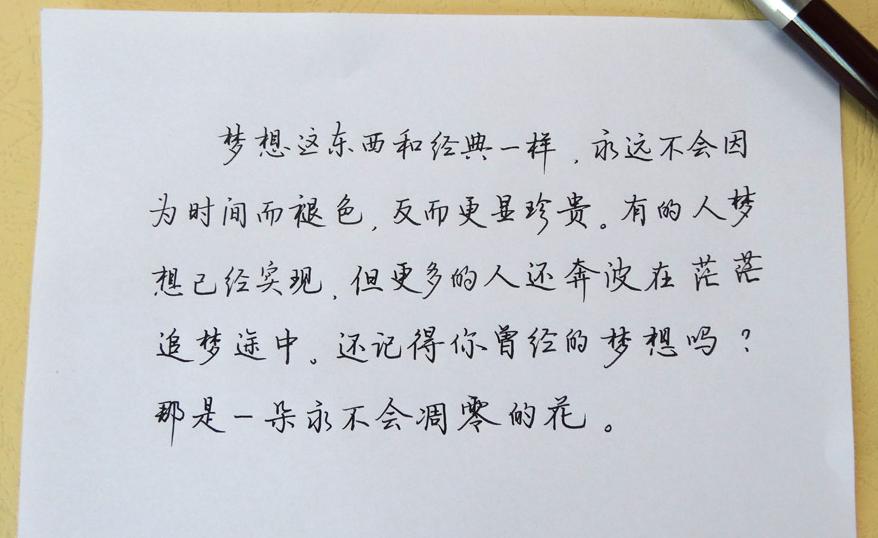 梦想这东西和经典一样，永远不会因
为时间而褪色，反而更显珍贵。有的人梦
想已经实现，但更多的人还奔波在茫茫
追梦途中。还记得你曾经的梦想吗？
那是一朵永不会凋零的花。